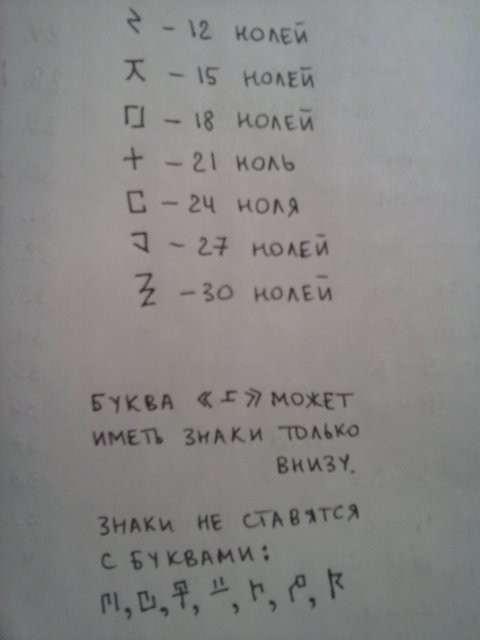 – 12 НОЛЕЙ
– 15 НОЛЕЙ
– 18 НОЛЕЙ
+ – 21 НОЛЬ
– 24 НОЛЯ
– 27 НОЛЕЙ
– 30 НОЛЕЙ
БУКВА « » МОЖЕТ
ИМЕТЬ ЗНАКИ ТОЛЬКО
ВНИЗУ.
ЗНАКИ НЕ СТАВЯТСЯ
С БУКВАМИ: